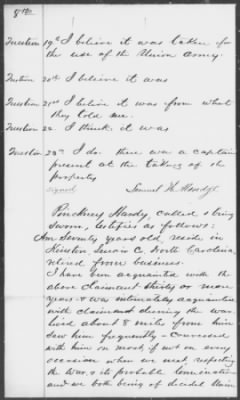 8th
Question 19th I believe it was taken for
the use of the Union Army.
Question 20th I believe it was
Question 21st I believe it was from what
they told me.
Question 22 I think it was
Question 23d I do there was a captain
present at the taking of the
property
signed Samuel H.
Pinckney Hardy, called & being
sworn, testifies as follows:
Am Seventy years old, reside in
Kinston Lenoir Co North Carolina,
retired from business.
I have been acquainted with the
above Claimant thirty or more
years & was intimately acquainted
with claimant during the war.
lived about 8 miles from him
saw him frequently - conversed
with him on most if not on every
occasion when we met, respecting
the War & its probable termination
and we both being of decided Union